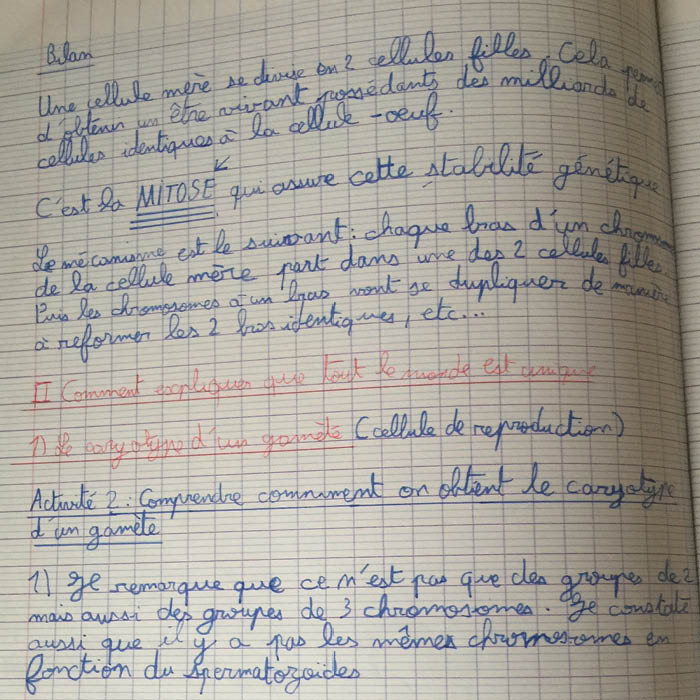 Bilan
Une cellule mère se divise en 2 cellules filles. Cela
d'obtenir un être vivant possédants des milliards de
cellules identiques à la cellule-oeuf.
C'est la MITOSE qui assure cette stabilité génétique
Le mécanisme est le suivant : chaque bras d'un
de la cellule mère part dans une des 2 cellules filles.
Puis les chromosomes à un bras vont se dupliquer de manière
à reformer les 2 bras identiques, etc...
II Comment expliquer que tout le monde est unique
1) Le caryotype d'un gamète (cellule de reproduction)
Activité 2 : Comprendre commment on obtient le caryotype
d'un gamète
1) Je remarque que ce n'est pas que des groupes de 2
mais aussi des groupes de 3 chromosomes. Je constate
aussi que il y a pas les mêmes chromosomes en
fonction du spermatozoides